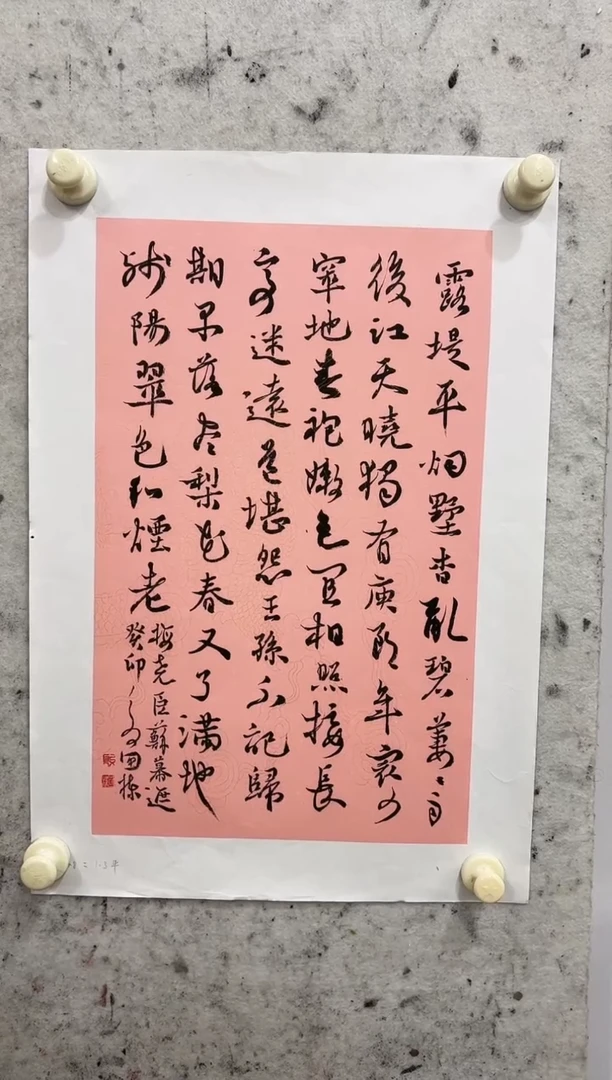 露堤平烟墅杳亂碧萋〻雨
後江天曉獨有庾郎年最少
窣地春袍嫩色宜相照接長
亭迷遠道堪怨王孫不記歸
期早落盡梨花春又了滿地
殘陽翠色和煙老
梅堯臣蘇幕遮
癸卯國棟